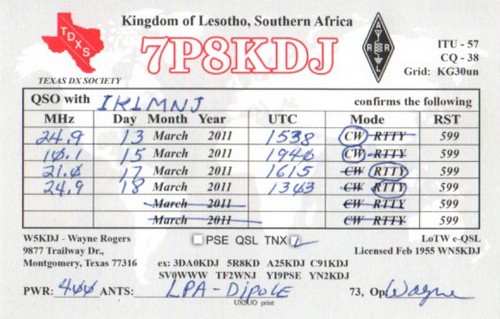 Kingdom of Lesotho, Southern Africa
TDXS
TEXAS DX SOCIETY
7P8KDJ
ARRL
ITU - 57
CQ - 38
Grid: KG30un
QSO with IK1MNJ confirms the following
MHz Day Month Year UTC Mode RST
24.9 13 March 2011 1538 CW RTTY 599
10.1 15 March 2011 1940 CW RTTY 599
21.0 17 March 2011 1615 CW RTTY 599
24.9 18 March 2011 1303 CW RTTY 599
March 2011 CW RTTY 599
March 2011 CW RTTY 599
PSE QSL TNX
W5KDJ - Wayne Rogers
9877 Trailway Dr.,
Montgomery, Texas 77316
ex: 3DA0KDJ 5R8KD A25KDJ C91KDJ
SV0WWW TF2WNJ YI9PSE YN2KDJ
LoTW e-QSL
Licensed Feb 1955 WN5KDJ
PWR: 400 ANTS: LPA - DIPOLE 73, Op Wayne
UX5UO print